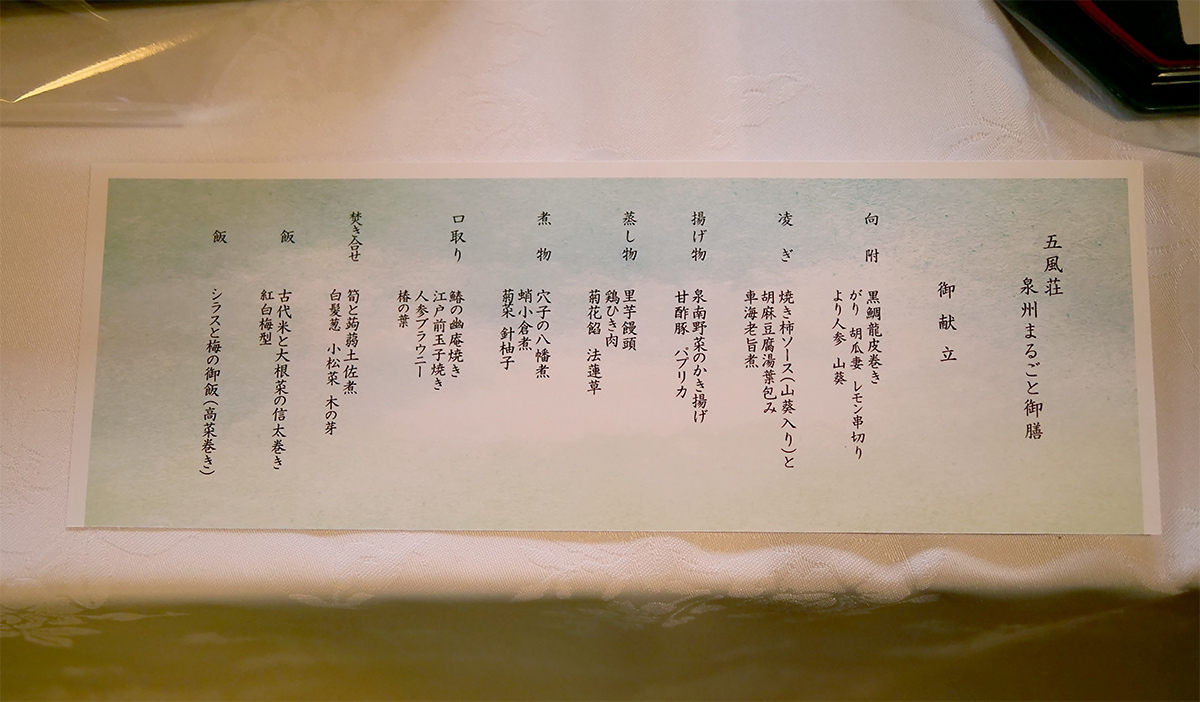 五風荘
泉州まるごと御膳
御献立
向附
黒鯛龍皮巻き
がり 胡瓜妻 レモン串切り
より人参 山葵
凌ぎ
焼き柿ソース(山葵入り)と
胡麻豆腐湯葉包み
車海老旨煮
揚げ物
泉南野菜のかき揚げ
甘酢豚 パプリカ
蒸し物
里芋饅頭
鶏ひき肉
菊花餡 法蓮草
煮物
穴子の八幡煮
蛸小倉煮
菊菜 針柚子
口取り
鰆の幽庵焼き
江戸前玉子焼き
人参ブラウニー
椿の葉
焚き合せ
筍と蒟蒻土佐煮
白髪葱 小松菜 木の芽
飯
古代米と大根菜の信太巻き
紅白梅型
飯
シラスと梅の御飯(高菜巻き)